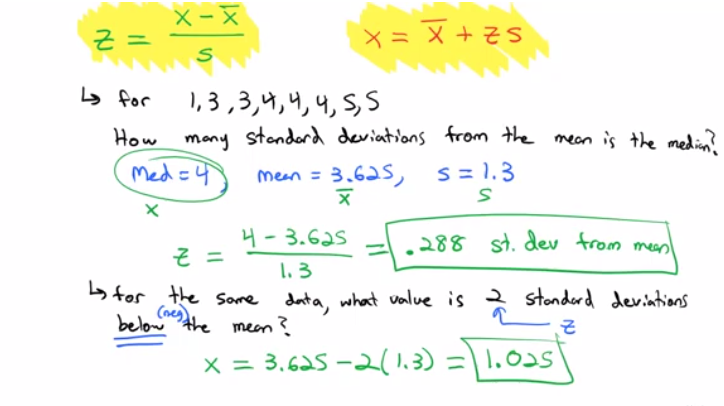 z = (x - x̄) / s    x = x̄ + zs
↳ for 1, 3, 3, 4, 4, 4, 5, 5
How many standard deviations from the mean is the median?
Med = 4, mean = 3.625, s = 1.3
x x̄ s
z = (4 - 3.625) / 1.3 = .288 st. dev from mean
↳ for the same data, what value is 2 standard deviations
(neg)
below the mean? z
x = 3.625 - 2(1.3) = 1.025